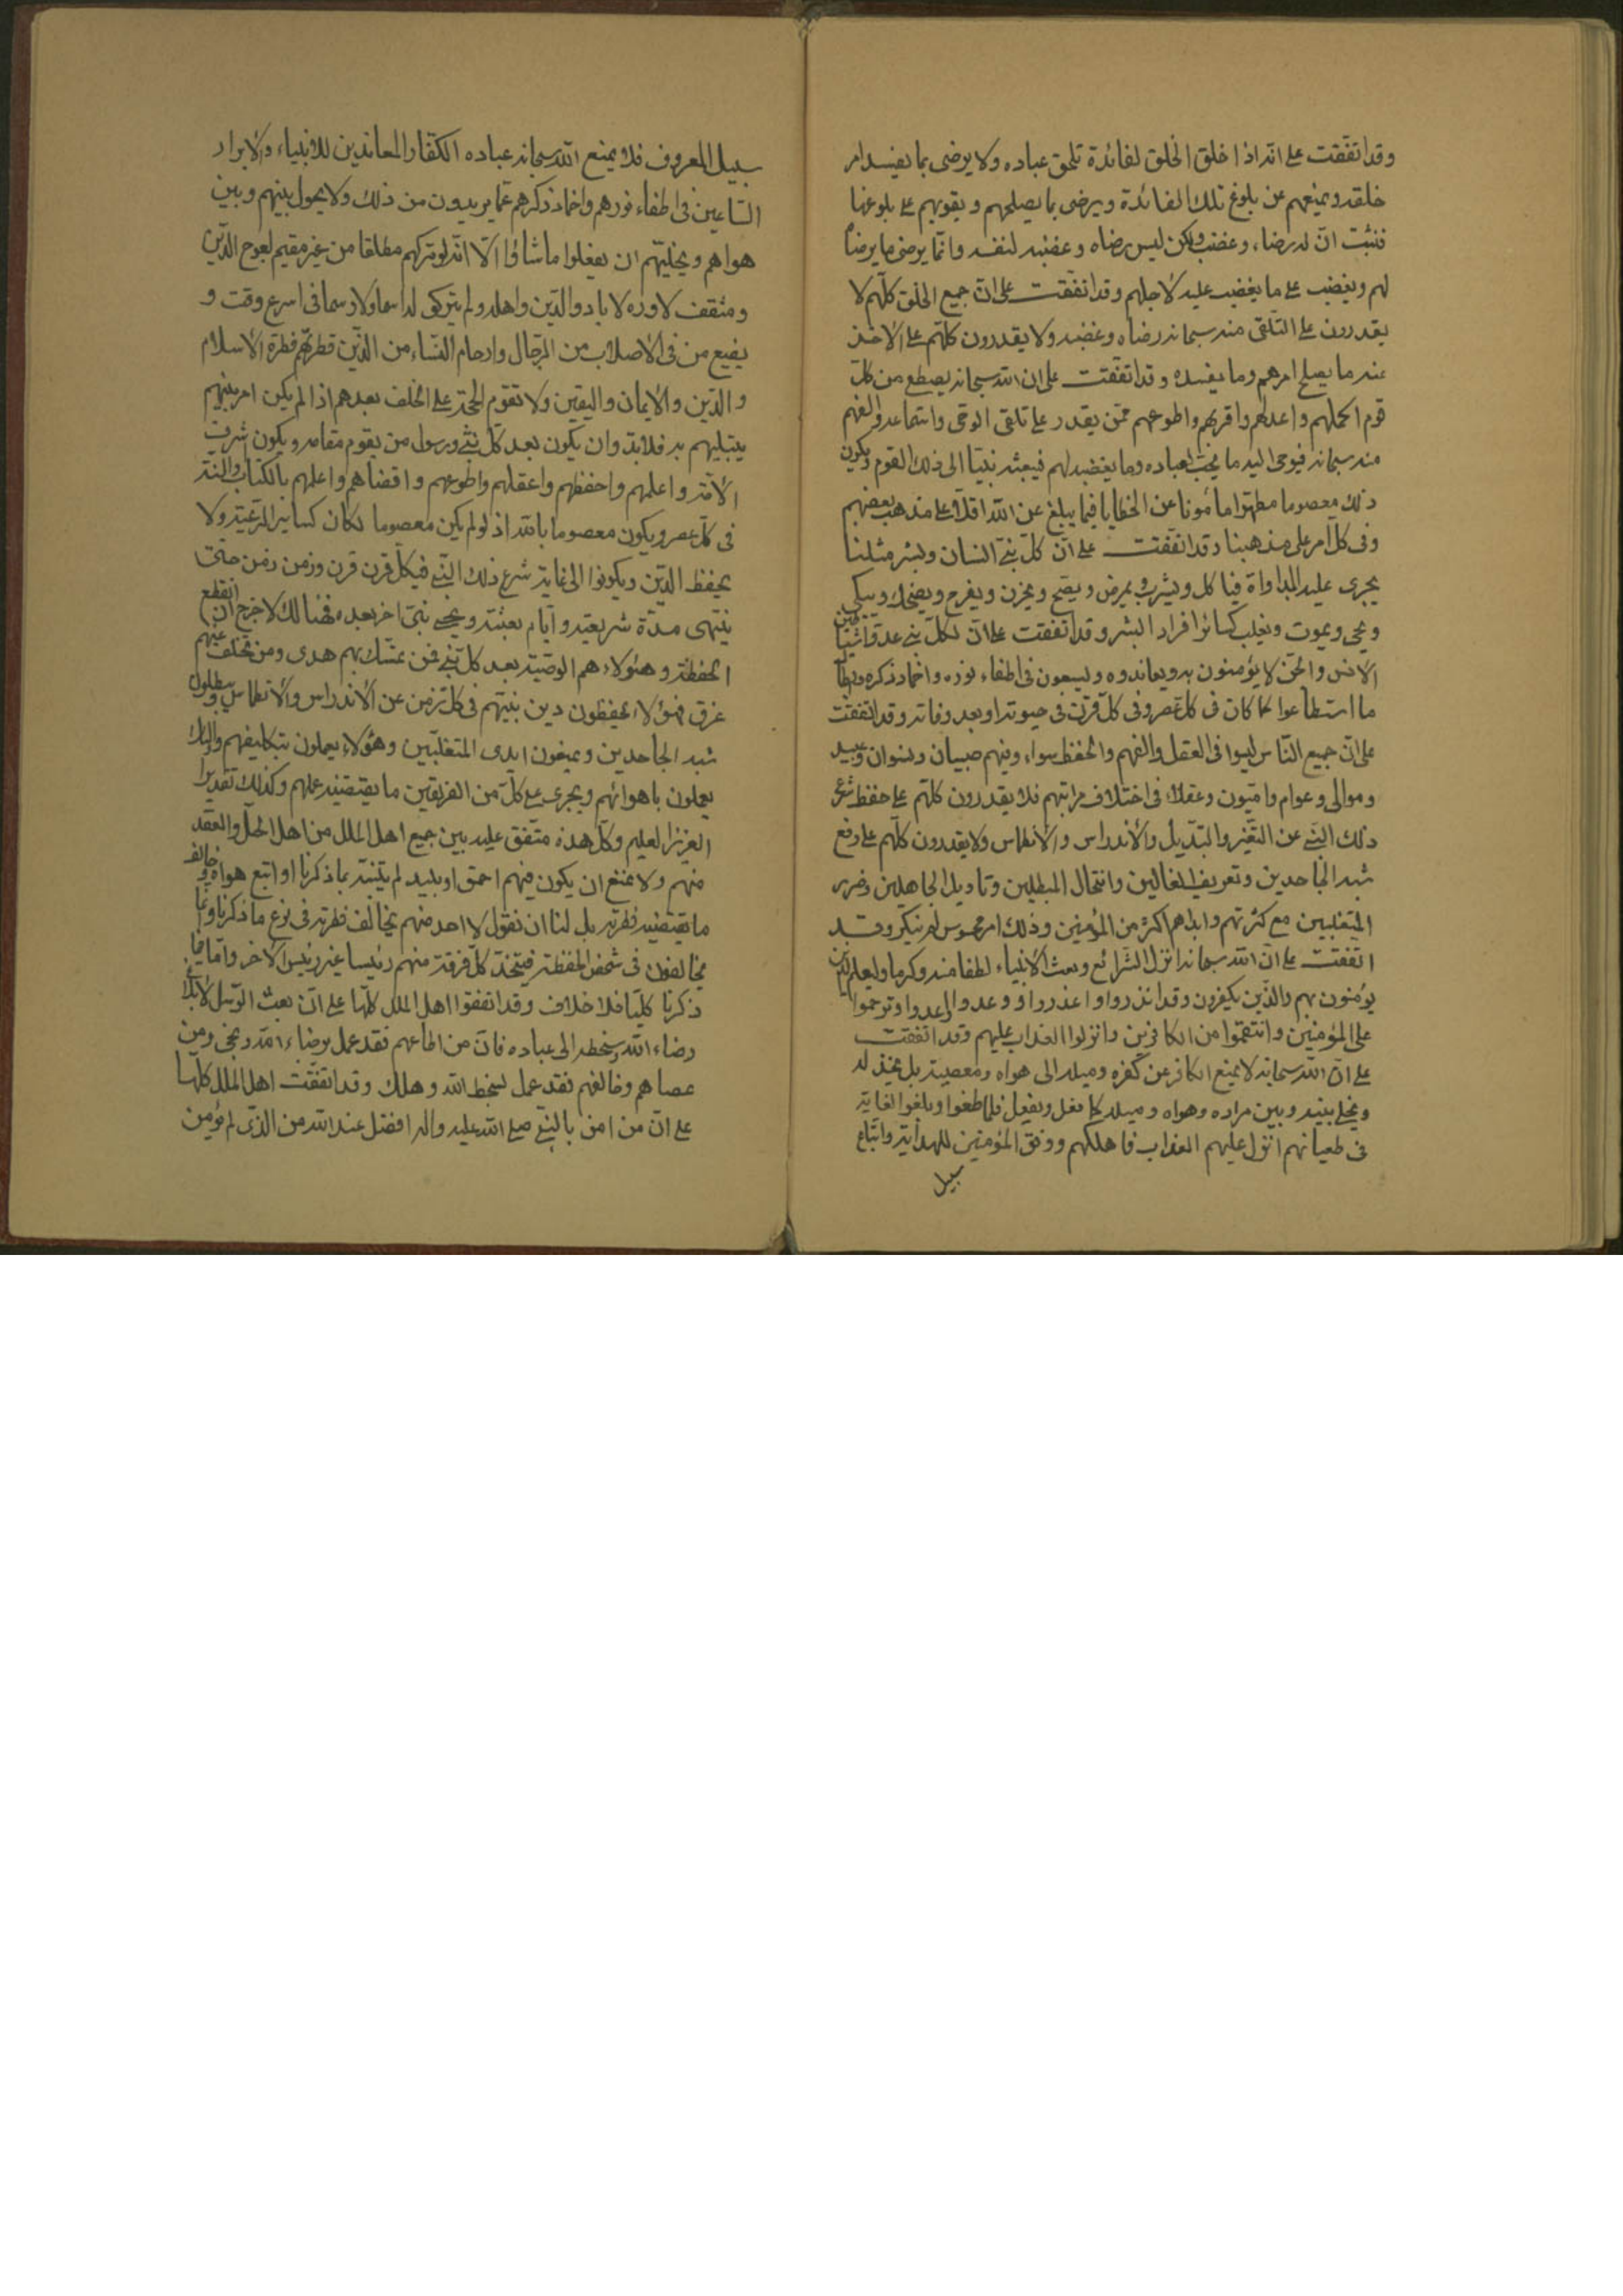 وقد اتفقت على انه اذا خلق الخلق لفائدة تلحق عباده ولا يرضى بما يفسد امر
خلقه ويمنعهم عن بلوغ تلك الفائدة ويرضى بما يصلحهم ويقويهم على بلوغها
فثبت انّ له رضاء وغضب ولكن ليس رضاه وغضبه لنفسه وانّما يرضى ما يرضاه
لهم ويغضب على ما يغضب عليه لاجلهم وقد اتفقت على انّ جميع الخلق كلّهم لا
يقدرون على التلقى منه سبحانه رضاه وغضبه ولا يقدرون كلّهم على الاخذ
عنه ما يصلح امرهم وما يفسده وقد اتفقت على ان الله سبحانه يصطع من كلّ
قوم اكملهم واعدلهم واقربهم واطوعهم ممّن يقدر على تلقى الوحى واستماعه والفهم
منه سبحانه فيوحى اليه ما يحبّ لعباده وما يغضبه لهم فيبعثه نبيّا الى ذلك القوم ويكون
ذلك معصوما مطهرا مأمونا عن الخطايا فيما يبلغ عن الله اقلّا على مذهب بعضهم
وفى كلّ امر على مذهبنا وقد اتفقت على انّ كلّ نبىّ انسان وبشر مثلنا
يجرى عليه المداواة فياكل ويشرب ويمرض ويصّح ويحزن ويفرح ويضحك ويبكى
ويحى ويموت ويغلب كسائر افراد البشر وقد اتفقت على انّ لكلّ نبى عدوّا شياطين
الانس والجنّ لا يؤمنون به ويعاندوه ويسعون فى اطفاء نوره واخماد ذكره
ما استطاعوا كما كان فى كلّ عصر وفى كلّ قرن فى حيوته او بعد وفاته وقد اتفقت
على انّ جميع النّاس ليسوا فى العقل والفهم والحفظ سواء وفيهم صبيان ونسوان وعبيد
وموالى وعوام وامّيون وعقلاء فى اختلاف مراتبهم فلا يقدرون كلّهم على حفظ شرع
ذلك النبىّ عن التغيّر والتبديل والاندراس والانطماس ولا يقدرون كلّهم على دفع
شبه الجاحدين وتحريف الغالين وانتحال المبطلين وتاويل الجاهلين وضرر
المتغلبين مع كثرتهم وانّهم اكثر من المؤمنين وذلك امر محسوس لم ينكر وقد
اتفقت على انّ الله سبحانه انزل الشّرائع وبعث الانبياء لطفا منه وكرما وليعلم الذين
يؤمنون بهم والّذين يكفرون وقد انذروا واعذروا ووعدوا واوعدوا وترحموا
على المؤمنين وانتقموا من الكافرين وانزلوا العذاب عليهم وقد اتفقت
على انّ الله سبحانه لا يمنع الكافر عن كفره وميله الى هواه ومعصيته بل يخذله
ويخلى بينه وبين مراده وهواه وميله كما فعل ويفعل فلما طغوا وبلغوا الغاية
فى طغيانهم انزل عليهم العذاب فاهلكهم ووفق المؤمنين للهداية واتّباع
سبيل
سبيل المعروف فلا يمنع الله سبحانه عباده الكفّار المعاندين للانبياء والابرار
السّاعين فى اطفاء نورهم واخماد ذكرهم عمّا يريدون من ذلك ولا يحول بينهم وبين
هواهم ويخلّيهم ان يفعلوا ما شاؤا الّا انّه لو تركهم مطلقا من غير مقيم لعوج الدّين
ومثقف لاوده لاباد والدّين واهله ولم يترك له اسما ولا رسما فى اسرع وقت و
يضيع من فى الاصلاب من الرّجال وارحام النّساء من الذين فطرتهم فطرة الاسلام
والدّين والايمان واليقين ولا تقوم الحجّة على الخلف بعدهم اذا لم يكن امر بينهم
يبتليهم به فلا بدّ وان يكون بعد كلّ نبى ورسول من يقوم مقامه ويكون اشرف
الامّة واعلمهم واحفظهم واعقلهم واطوعهم واقضاهم واعلمهم بالكتاب والسنّة
فى كلّ عصر ويكون معصوما بالله اذ لو لم يكن معصوما لكان كساير الرّعيّة ولا
يحفظ الدّين ويكونوا الى غاية شرع ذلك النبىّ فى كلّ قرن قرن وزمن زمن حتى
ينتهى مدّة شريعته وايّام بعثته ويجىء نبىّ اخر بعده فهنالك لا حرج ان انقطع
الحفظة وهؤلاء هم الوصيّة بعد كلّ نبىّ فمن تمسّك بهم هدى ومن تخلّف عنهم
غرق فهؤلاء يحفظون دين نبيّهم فى كلّ زمن عن الاندراس والانطماس ويبطلون
شبه الجاحدين ويعيفون ايدى المتغلبين وهؤلاء يعملون بتكاليفهم واولئك
يعملون باهوائهم ويجرى على كلّ من الفريقين ما يقتضيه عملهم وكذلك تقدير
العزيز العليم وكلّ هذه متّفق عليه بين جميع اهل الملل من اهل الحلّ والعقد
منهم ولا يمنع ان يكون فيهم احمق او بليد لم يتنبّه بما ذكرنا او اتبع هواه وخالف
ما يقتضيه فطرته بل لنا ان نقول لا احد منهم يخالف فطرته فى نوع ما ذكرنا وانّما
يخالفون فى شخص الحفظة فيتّخذ كلّ فرقة منهم رئيسا غير رئيس الاخر وامّا فيما
ذكرنا كليّا فلا خلاف وقد اتفقوا اهل الملل كلّها على انّ بعث الرّسل لابلاغ
رضاء الله وسخطه الى عباده فانّ من اطاعهم فقد عمل برضاء الله ونجى ومن
عصاهم وخالفهم فقد عمل لسخط الله وهلك وقد اتفقت اهل الملل كلّها
على انّ من امن بالنبىّ صلى الله عليه واله افضل عند الله من الّذى لم يؤمن